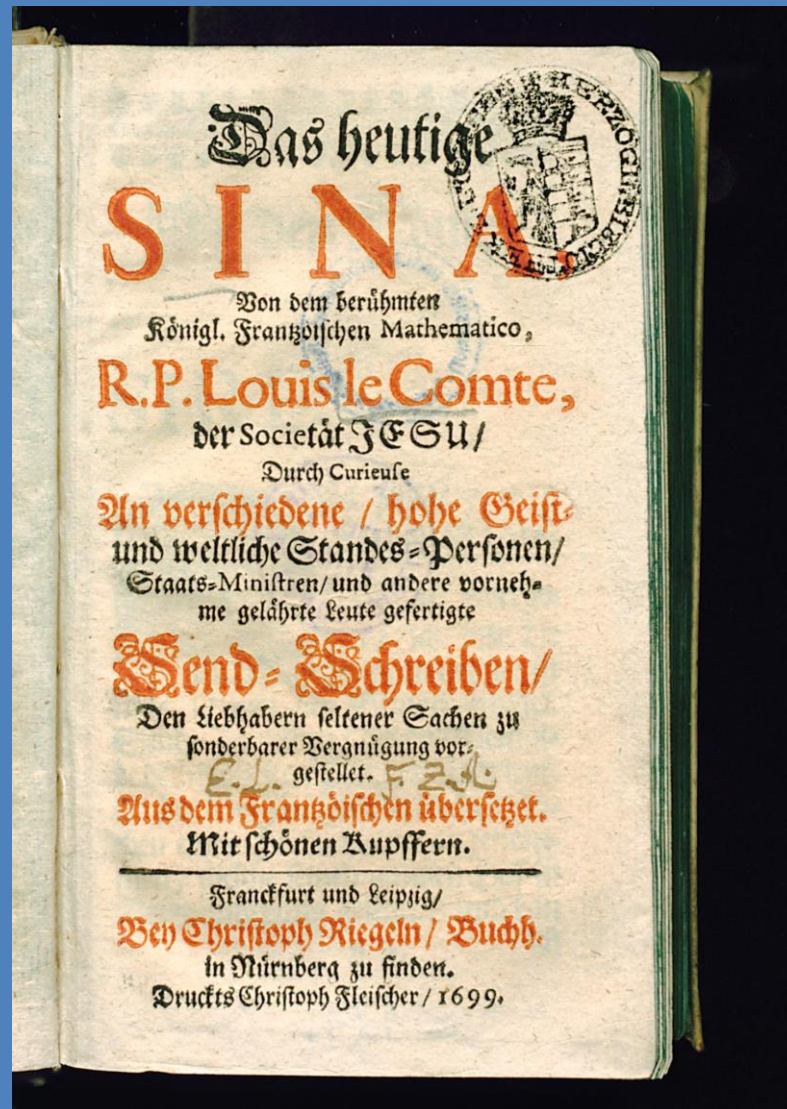 Das heutige
SINA,
Von dem berühmten
Königl. Frantzöischen Mathematico,
R.P. Louis le Comte,
der Societät JESU/
Durch Curieuse
An verschiedene / hohe Geist-
und weltliche Standes-Personen/
Staats-Ministren/ und andere vorneh-
me gelährte Leute gefertigte
Send-Schreiben/
Den Liebhabern seltener Sachen zu
sonderbarer Vergnügung vor-
gestellet.
E.L. F.Z.A.
Aus dem Frantzöischen übersetzet.
Mit schönen Kupffern.
Franckfurt und Leipzig/
Bey Christoph Riegeln/ Buchh.
in Nürnberg zu finden.
Druckts Christoph Fleischer/ 1699.